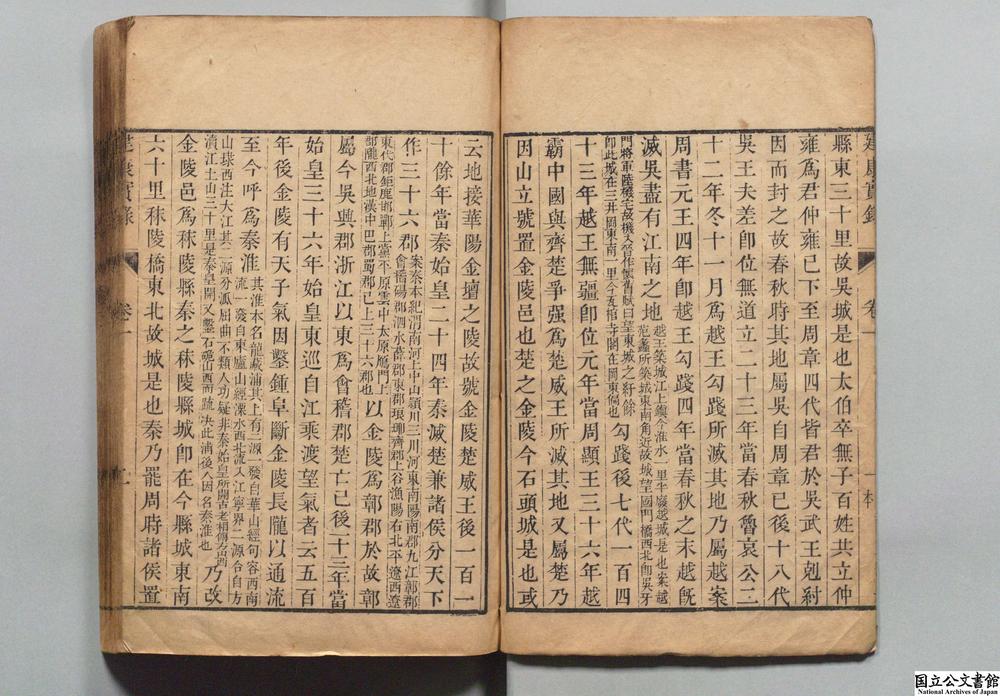 縣東三十里故吳城是也太伯卒無子百姓共立仲
雍爲君仲雍已下至周章四代皆君於吳武王剋紂
因而封之故春秋時其地屬吳自周章已後十八代
吳王夫差卽位無道立二十三年當春秋魯哀公二
十二年冬十一月爲越王勾踐所滅其地乃屬越案
周書元王四年卽越王勾踐四年當春秋之末越旣
滅吳盡有江南之地越王築城江上鎭今淮水一里半廢越城是也案越
范蠡所築城東南角近故城望國門橋西北卽吳牙
門將軍陸機宅故機入晉作懷舊賦曰望東城之紆餘
卽此城在三井岡東南一里今瓦棺寺閣在岡東偏也勾踐後七代一百四
十三年越王無疆卽位元年當周顯王三十六年越
霸中國與齊楚爭强爲楚威王所滅其地又屬楚乃
因山立號置金陵邑也楚之金陵今石頭城是也或
云地接華陽金壇之陵故號金陵楚威王後一百一
十餘年當秦始皇二十四年秦滅楚兼諸侯分天下
作三十六郡案秦本紀渭南河上中山潁川三川河東南陽南郡九江鄣郡
會稽碭郡泗水薛郡東郡琅琊齊郡上谷漁陽右北平遼西遼
東代郡鉅鹿邯鄲上黨太原雲中太原鴈門上
郡隴西北地漢中巴郡蜀郡已上三十六郡也以金陵爲鄣郡於故鄣
屬今吳興郡浙江以東爲會稽郡楚亡已後十三年當
始皇三十六年始皇東巡自江乘渡望氣者云五百
年後金陵有天子氣因鑿鍾阜斷金陵長隴以通流
至今呼爲秦淮其淮本名龍藏浦其上有二源一發自華山經句容西南
流一發自東廬山經溧水西北流入江寧界二源合自方
山埭西注大江其二源分派屈曲不類人功疑非秦始皇所開古老相傳方西
瀆江土山三十里是秦皇開又鑿石硊山西而疏決此浦後因名秦淮也乃改
金陵邑爲秣陵縣秦之秣陵縣城卽在今縣城東南
六十里秣陵橋東北故城是也秦乃罷周時諸侯置
建康實錄
卷一
国立公文書館
National Archives of Japan